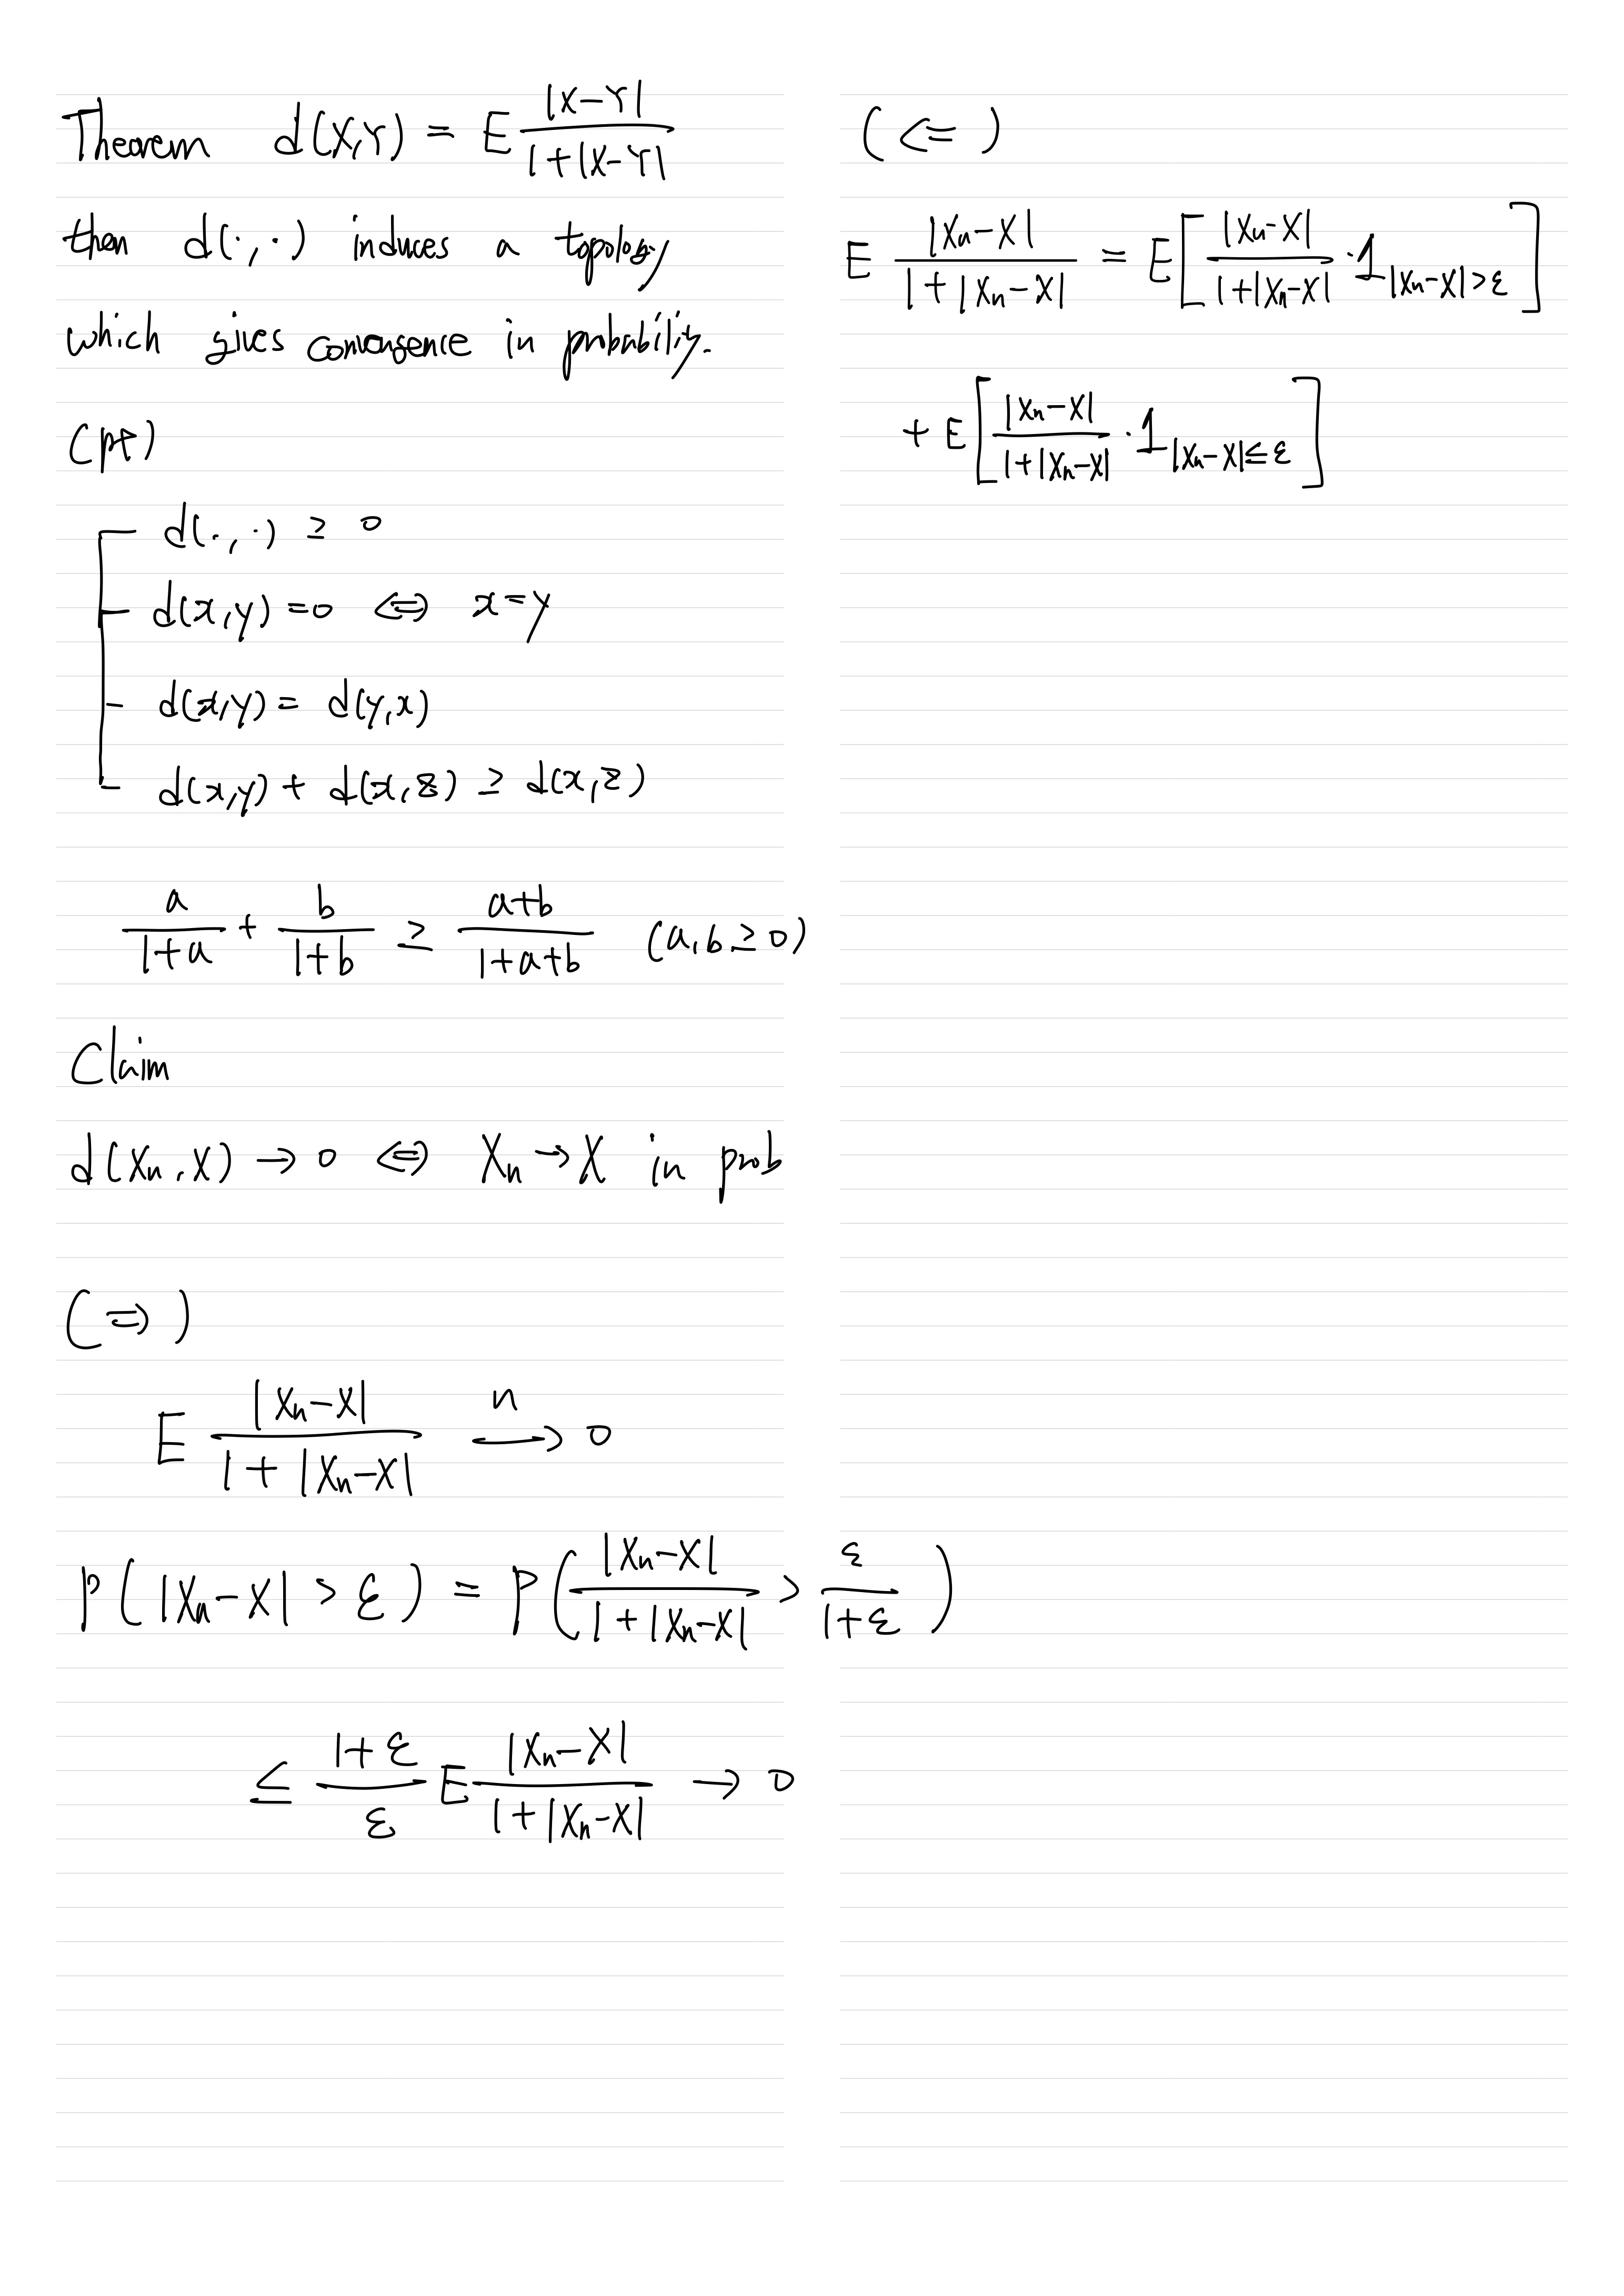 Theorem d(X,Y) = E |X-Y| / (1+|X-Y|)
then d(·,·) induces a topology
which gives convergence in probability.
(pf)
d(·,·) ≥ 0
d(x,y) = 0 ⇔ x=y
d(x,y) = d(y,x)
d(x,y) + d(x,z) ≥ d(x,z)
a/(1+a) + b/(1+b) ≥ (a+b)/(1+a+b) (a,b ≥ 0)
Claim
d(Xn,X) → 0 ⇔ Xn → X in prob
(⇒)
E |Xn-X| / (1+|Xn-X|) →^n 0
P( |Xn-X| > ε ) = P( |Xn-X| / (1+|Xn-X|) > ε/(1+ε) )
≤ (1+ε)/ε E |Xn-X| / (1+|Xn-X|) → 0
(<=)
E |Xn-X| / (1+|Xn-X|) = E[ |Xn-X| / (1+|Xn-X|) · 1_{|Xn-X|>ε} ]
+ E[ |Xn-X| / (1+|Xn-X|) · 1_{|Xn-X|≤ε} ]